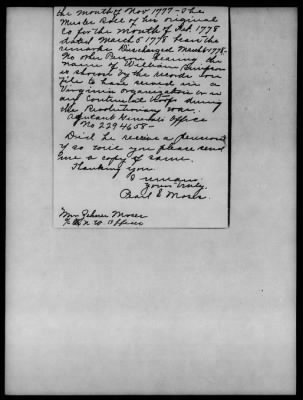 the month of Nov 1777 - The
Muster Roll of his original
Co for the month of Feb. 1778
dated March 5 1778 bears the
remarks Discharged March 6 1778 -
No other Person bearing the
name of William Simpson
is shown by the records on
file to have served in a
Virginia organization or in
any Continental troops during
the Revolutionary War.
Adjutant Generals Office
No 2294658 -
Did he receive a pension
If so will you please send
me a copy of same.
Thanking you
I remain
Yours truly
Pearl E Moser
Mrs Moser
Office